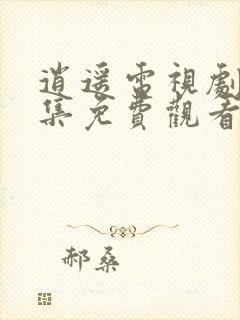 逍遥雷視劇
集免費觀看
郝桑